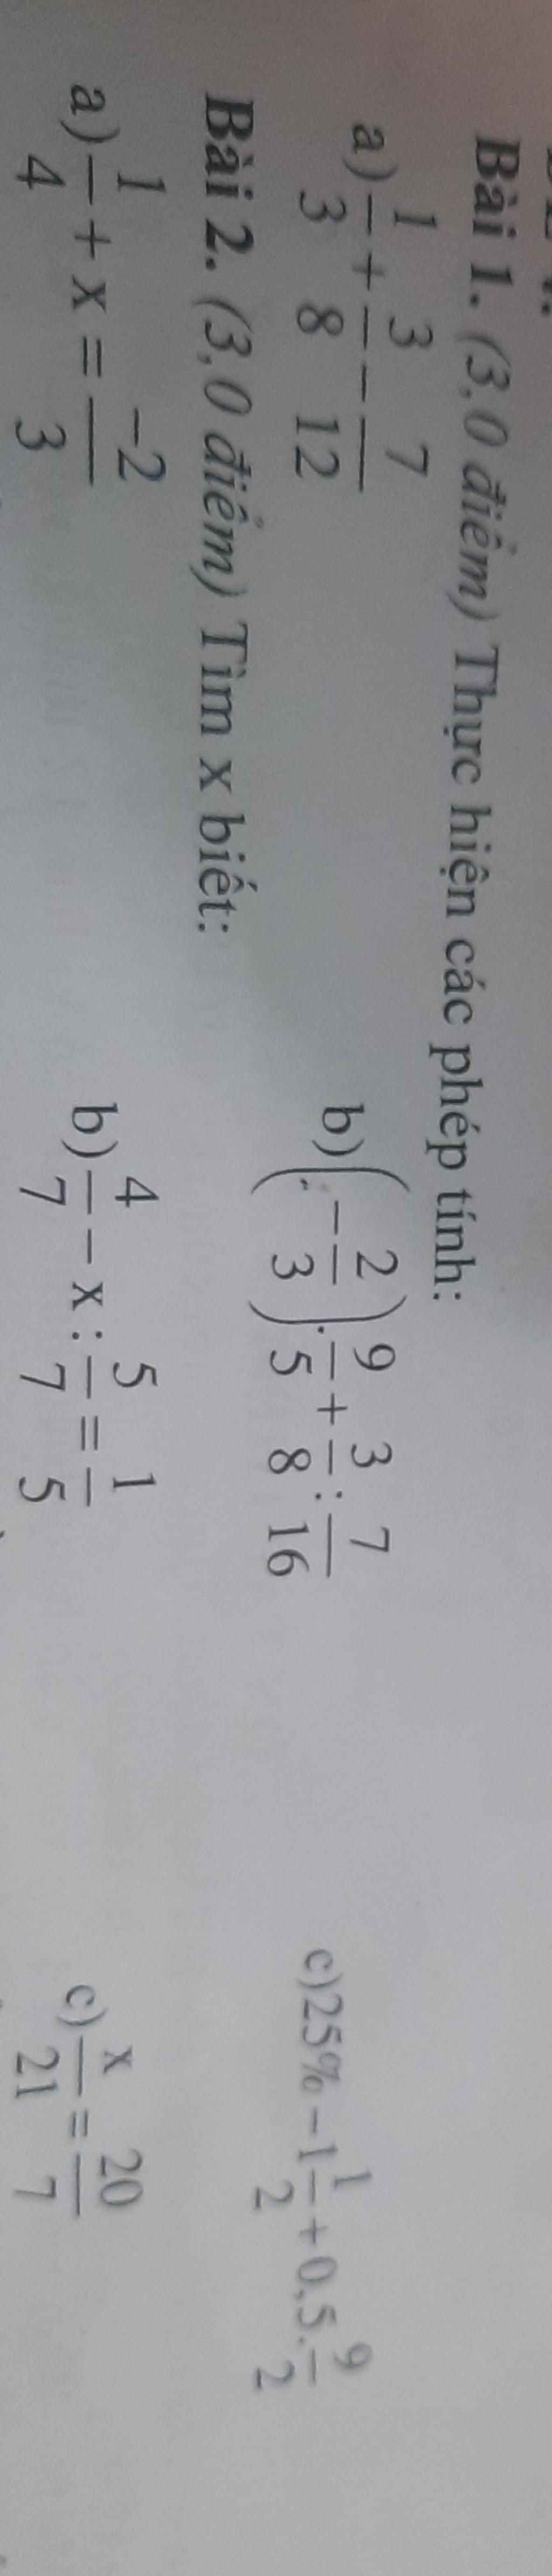 Bài 1. (3,0 điểm) Thực hiện các phép tính:
a) 1/3 + 3/8 - 7/12 b) (-2/3).9/5 + 3/8 : 7/16 c) 25% - 1 1/2 + 0,5.9/2
Bài 2. (3,0 điểm) Tìm x biết:
a) 1/4 + x = -2/3 b) 4/7 - x : 5/7 = 1/5 c) x/21 = 20/7